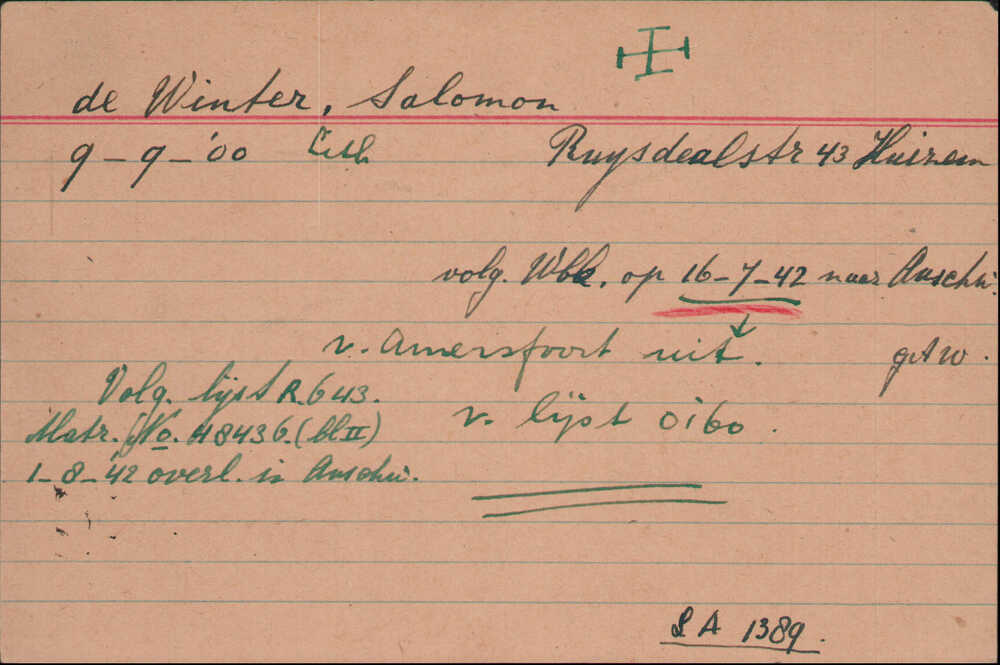 de Winter, Salomon
9-9-'00 Lith Ruysdealstr 43 Huizem
volg. Wbk. op 16-7-42 naar Auschw.
v. Amersfoort uit.
Volg. lijst R.643.
v. lijst 0160.
Matr. No. 48436. (bl II)
1-8-'42 overl. in Auschw.
L A 1389.